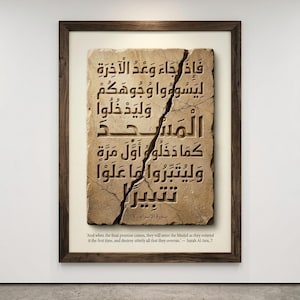 فَإِذَا جَاءَ وَعْدُ الْآخِرَةِ
لِيَسُوءُوا وُجُوهَكُمْ
وَلِيَدْخُلُوا
الْمَسْجِدَ
كَمَا دَخَلُوهُ أَوَّلَ مَرَّةٍ
وَلِيُتَبِّرُوا مَا عَلَوْا
تَتْبِيرًا
"And when the final promise comes, they will enter the Masjid as they entered
it the first time, and destroy utterly all that they overran." — Surah Al-Isra, 7